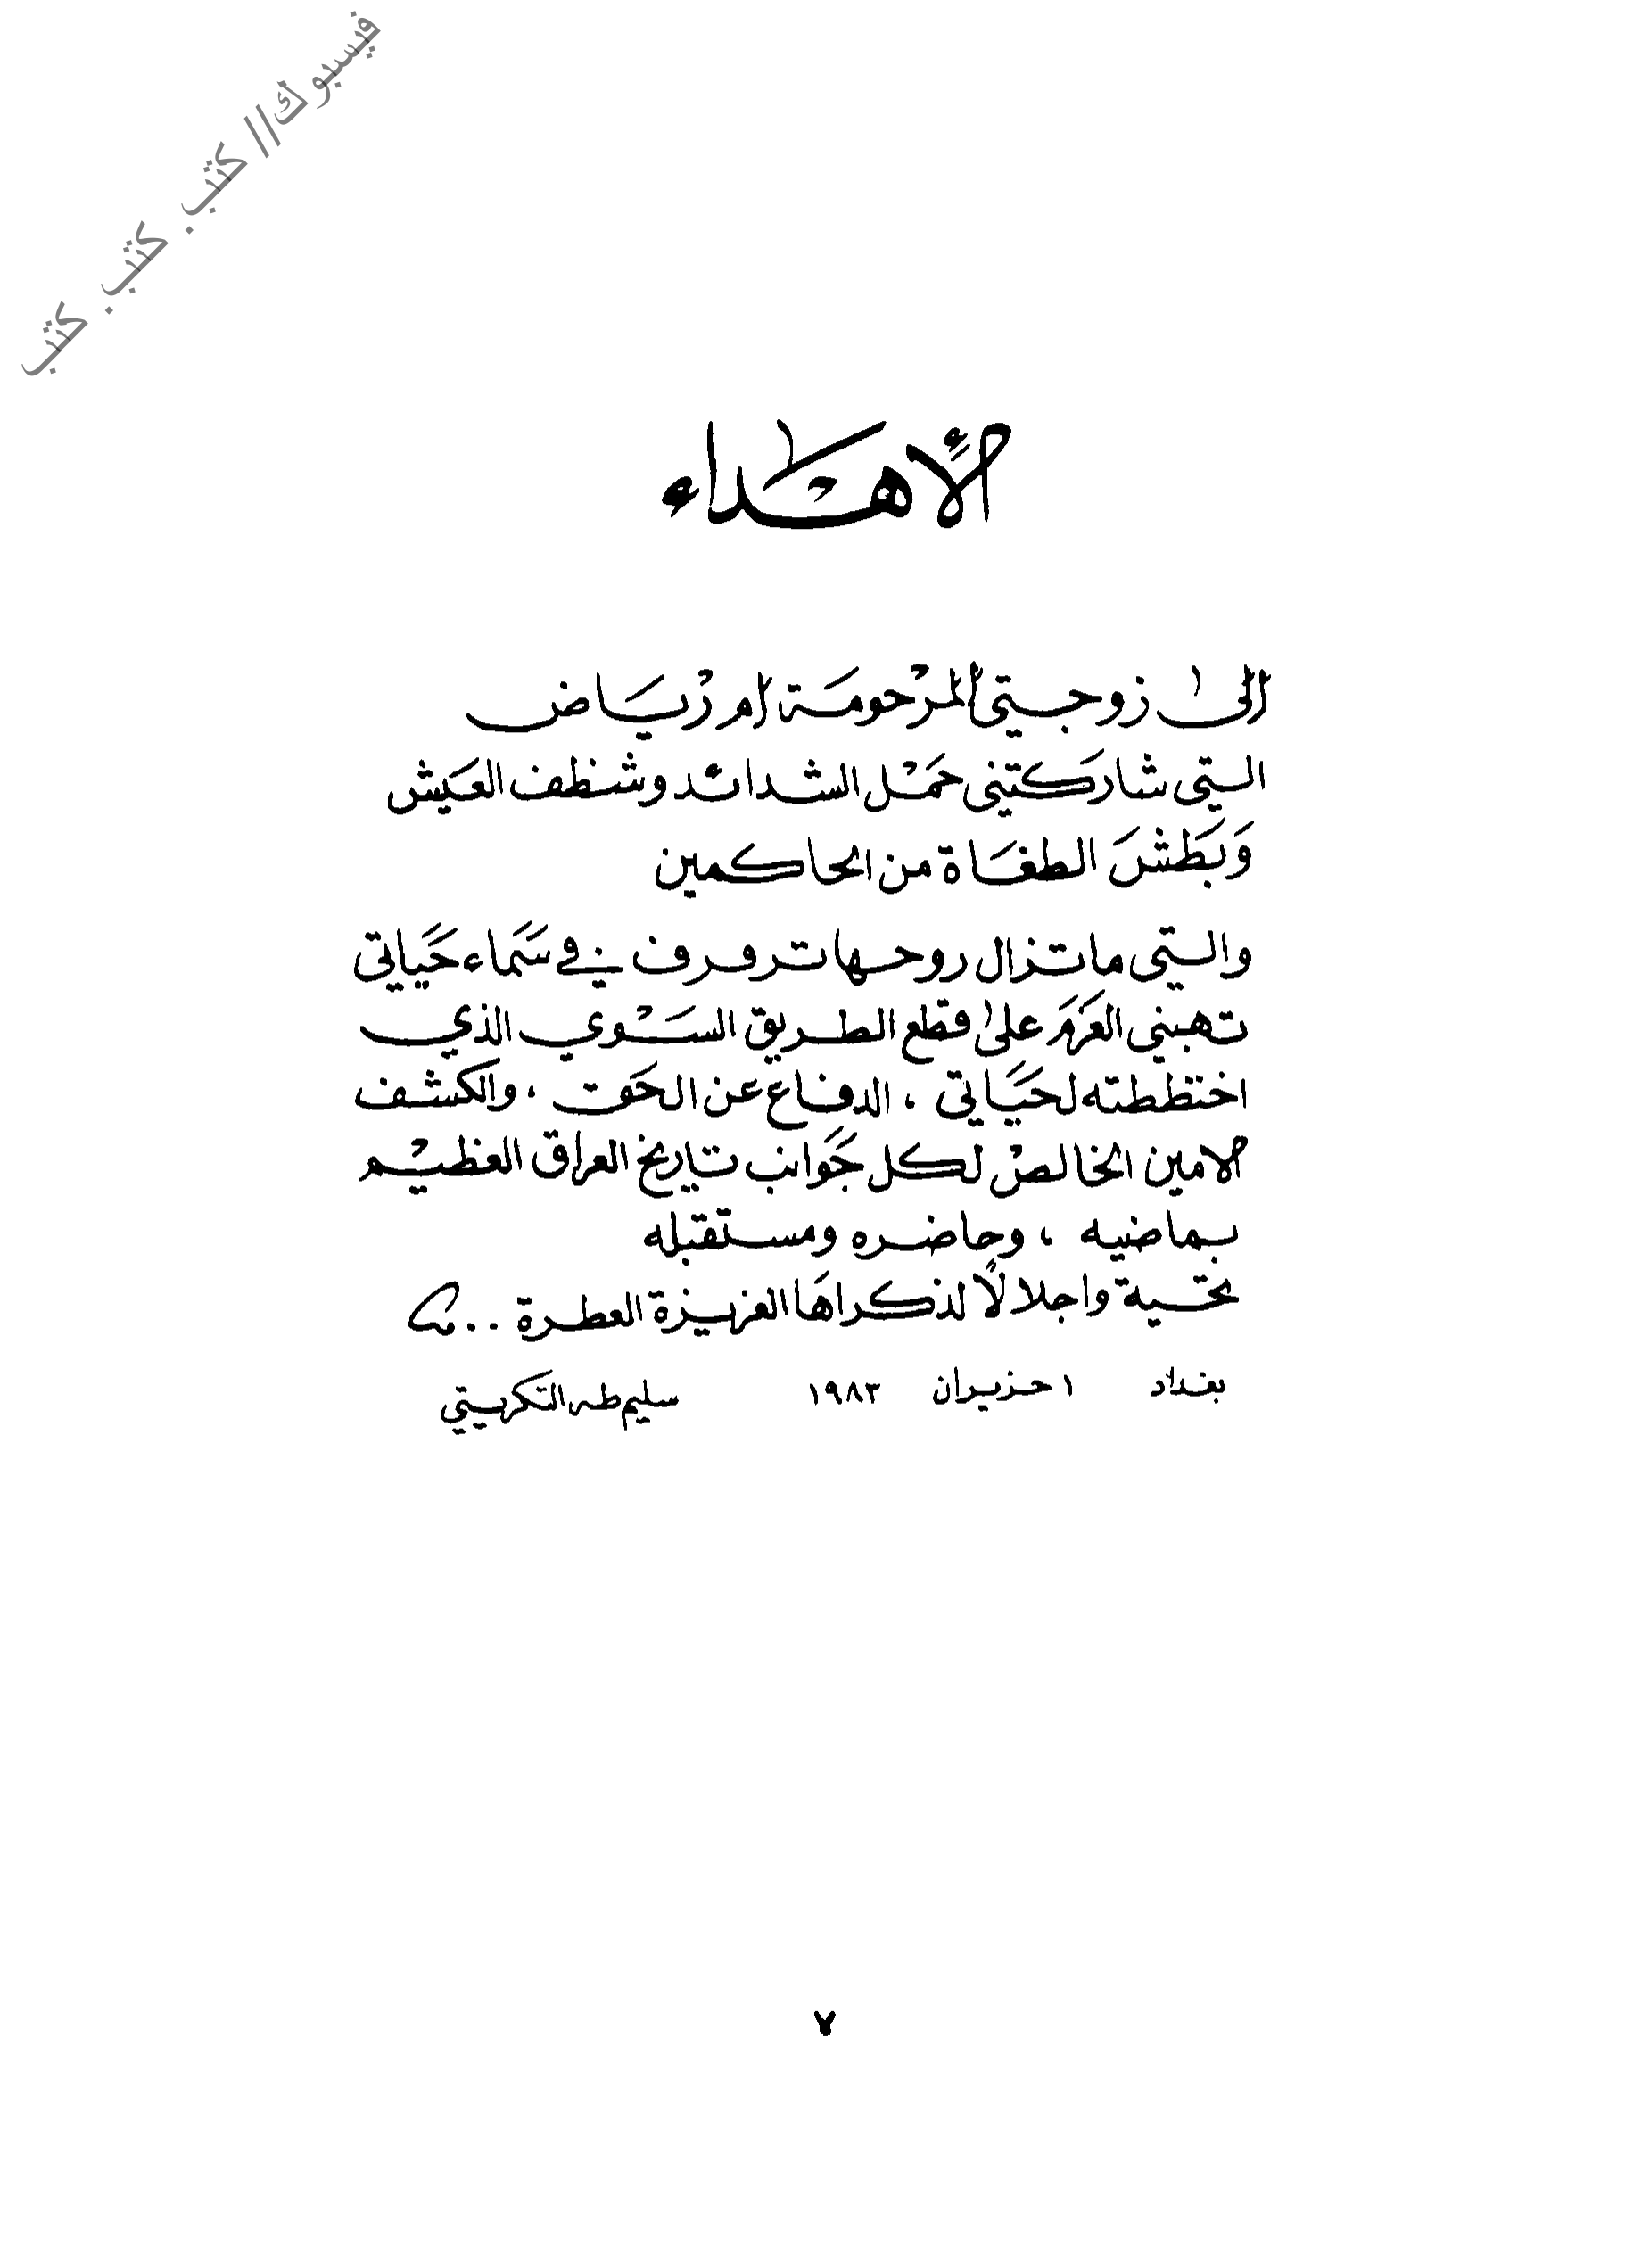 فيسبوك// كتب. كتب. كتب
الأهداء
الى زوجتي المرحومة ام رياض
التي شاركتني حمل الشدائد وشظف العيش
وَبَطَشَ الطغاة من الحاكمين
والتي ماتزال روحها ترفرف في سَماء حَياتي
تهبني العَزمَ على قطع الطريق السَوي الذي
اختططته لحَيَاتي ، الدفاع عن الحَق ، والكشف
الامين الخالص لكل جَوانب تاريخ العراق العظيم
بماضيه ، وحاضره ومستقبله
تحية واجلالاً لذكراهَا العزيزة العطرة ..
بغداد ١ حزيران ١٩٨٣ سليم طه التكريتي
٧